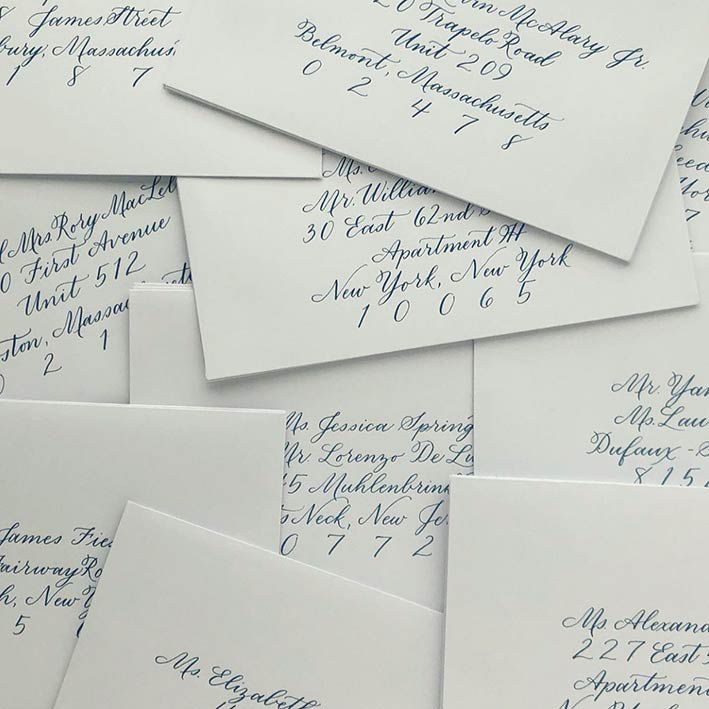 James Street
Massachus
1 8 7
McAlary Jr.
Trapelo Road
Unit 209
Belmont, Massachusetts
0 2 4 7 8
Ms.
Mr. Willia
30 East 62nd
Apartment 9H
New York, New York
1 0 0 6 5
Mrs. Rory MacLel
0 First Avenue
Unit 512
ston, Massac
0 2 1
Ms. Jessica Spring
Mr. Lorenzo De Lu
5 Muhlenbrin
s Neck, New Je
0 7 7 2
Mr. Yan
Ms. Lau
Dufaux - S
8 1 5
James Fie
airway Ro
h, New Y
5
Ms. Elizabeth
Ms. Alexand
227 East
Apartmen